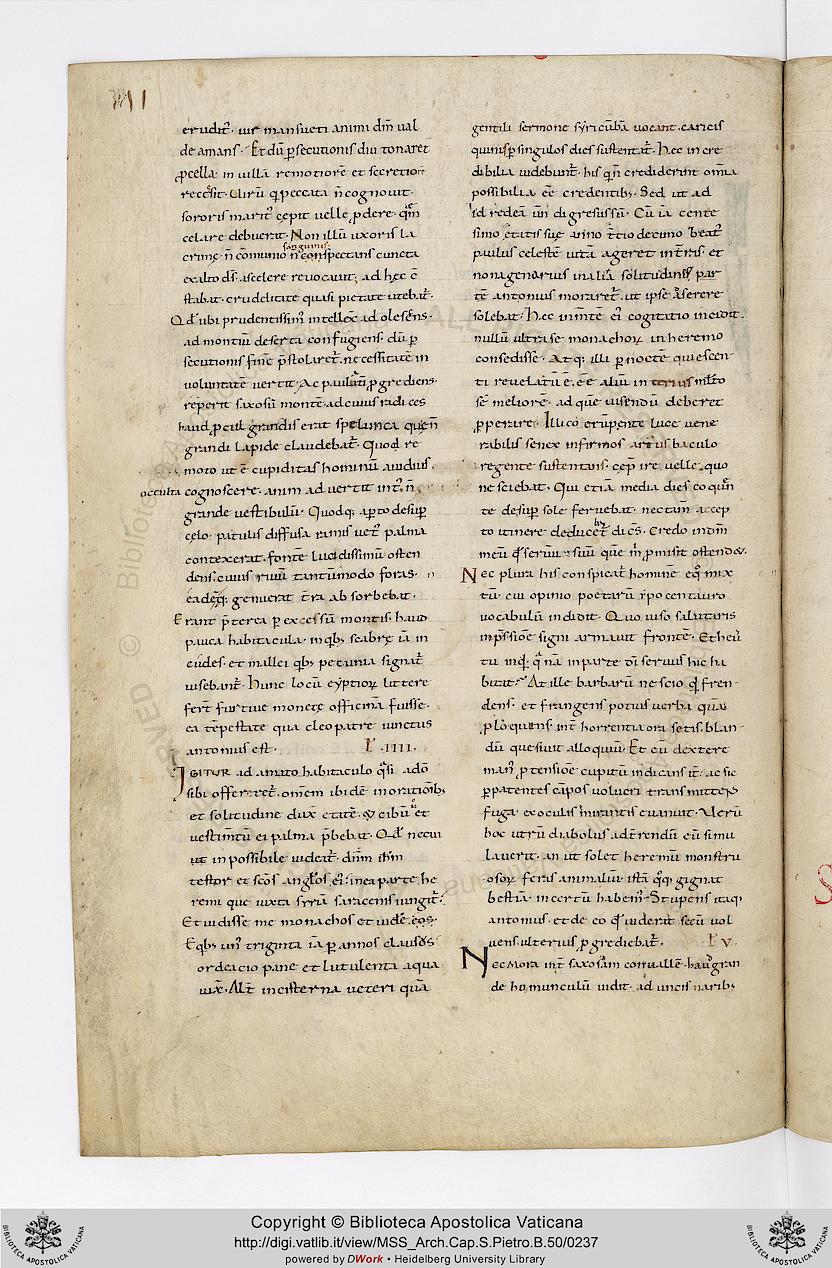 erudit᷒. vir mansueti animi dm̄ val
de amans. Et dū ꝑsecutionis diu tonaret
ꝓcella. in villā remotiorē et secretiorē
recessit. Uirū q̄ peccata n̄ cognouit.
sororis marit᷒ cepit velle ꝓdere. quē
celare debuerat. Non illū uxoris la
sanguinis.
crimę. n̄ cōmunio n̄ conspectans cuncta
exalto ds̄. a scelere reuocauit; ad hęc ē
stabat. crudelitate quasi pietate utebat᷒.
Qd̄ ubi prudentissim᷒ intellex̄ adolescēns.
ad montiū deserta confugiens. dū ꝑ
secutionis finē p̄stolaret᷒. necessitatē in
voluntatē vertit. Ac paulatī ꝓgrediens.
repperit saxosū montē. ad cuius radices
haud ꝓcul grandis erat spelunca quę n̄
grandi lapide claudebat᷒. Quod re
moto ut ē cupiditas hominū auidius.
occulta cognoscere. animaduertit int᷒. n̄
grande vestibulū. Quodq; apto desup
celo. patulis diffusa ramis uet᷒ palma
contexerat. fontē lucidissimū osten
dens. cuius riuū tantūmodo foras.
eadēq; genuerat tr̄a absorbebat.
Erant p̄terea ꝑ excessū montis. haud
pauca habitacula. inqb; scabrę iā in
cudes. et mallei qb; pecunia signat᷒
uisebant᷒. Hunc locū eyptior̄ littere
fert᷒ furtiue monetę officinā fuisse.
ea tēpestate qua cleopatre iunctus
antonius est. L̄ .IIII.
IGITUR adamato habitaculo q̄si a dō
sibi offerret᷒. omēm ibidē inorationib;
et solitudine dux̄ etatē. cibū et
uestimtū ei palma p̄bebat. Qd̄ necui
ut inpossibile uideat᷒. dnm̄ ihm̄
testor et scōs anglos ei᷒. in ea parte he
remi que iuxta syriā saracenis iungit᷒.
Et uidisse me monachos et uidē.eos.
E qb; un᷒ triginta iā ꝑ annos clausus
ordeacio pane et lutulenta aqua
uix̄. Alt᷒ in cisterna ueteri quā
gentili sermone syri cūbā uocant. caricis
quinis ꝑ singulos dies sustentat᷒. Hec incre
dibilia uidebunt᷒. his q̄ n̄ crediderint omīa
possibilia eē credentib;. Sed ut ad
id redeā un̄ digressus sū. Cū iā cente
simo etatis suę anno t᷒cio decimo beat᷒
paulus celestē uitā ageret in tr̄is. et
nonagenarius in alia solitudine par
tē antonius moraret᷒. ut ipse asserere
solebat. Hec in mētē ei᷒ cogitatio incidit.
nullū ultra se monachor̄ in heremo
consedisse. Atq; illi ꝑ noctē quiescen
ti reuelatū ē. eē aliū interius mlto
se meliorē. ad quē uisendū deberet
ꝓperare. Illico erūpente luce uene
rabilis senex infirmos artus baculo
regente sustentans. cep̄ ire uelle. quo
nesciebat. Qui etiā media dies coquen
te desup sole feruebat. nec tam̄ accep
to itinere deducet᷒ dices. Credo indm̄
meū q̄ seruū suū quē m̄ ꝓmisit ostendet.
Nec plura his conspicat᷒ hominē eq̄ mix
tū. cui opinio poetarū ypocentauro
uocabulū indidit. Quo uiso salutaris
inp̄ssionē signi armauit frontē. Et heu
tu inq̄. q̄ nā in parte di seruus hic ha
bitat᷒. At ille barbarū nescio q̄ fren
dens. et frangens potius uerba quā
ꝓloquens. int᷒ horrentia ora setis. blan
dū quesiuit alloquiū. Et cū dextere
man᷒ ꝓtensione cupitū indicans it᷒. ac sic
ꝑpatentes cāpos uolucri transmittens
fuga. ex oculis mirantis euanuit. Uerū
hoc utrū diabolus ad t᷒rendū eū simu
lauerit. an ut solet heremū monstru
osor̄ feris animaliū. istā qq; gignat
bestiā incertū habem᷒. Stupens itaq;
antonius. et de eo q̄ uiderit secū uol
uens. ulterius ꝓgrediebat᷒. L̄ V.
NEC MORA int᷒ saxosam conuallē. haud gran
dē homunculū uidit. ad uncis narib;
Copyright © Biblioteca Apostolica Vaticana
http://digi.vatlib.it/view/MSS_Arch.Cap.S.Pietro.B.50/0237
powered by DWork • Heidelberg University Library